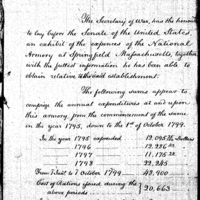 The Secretary of War, has the honor
to lay before the Senate of the United States,
an exhibit of the expences of the National
Armory at Springfield Massachusetts, together
with the fullest information, he has been able to
obtain relative to said establishment.
The following sums appear to
comprise the annual expenditures at and upon
this armory from the commencement of the same
in the year 1795, down to the 1st of October 1799.
In the year 1795 expended 12.095
1746
1747
1798 22.285
From 1 Octr to 1 October 1799 43.900
Cost of Rations issued during the
above periods 30,663